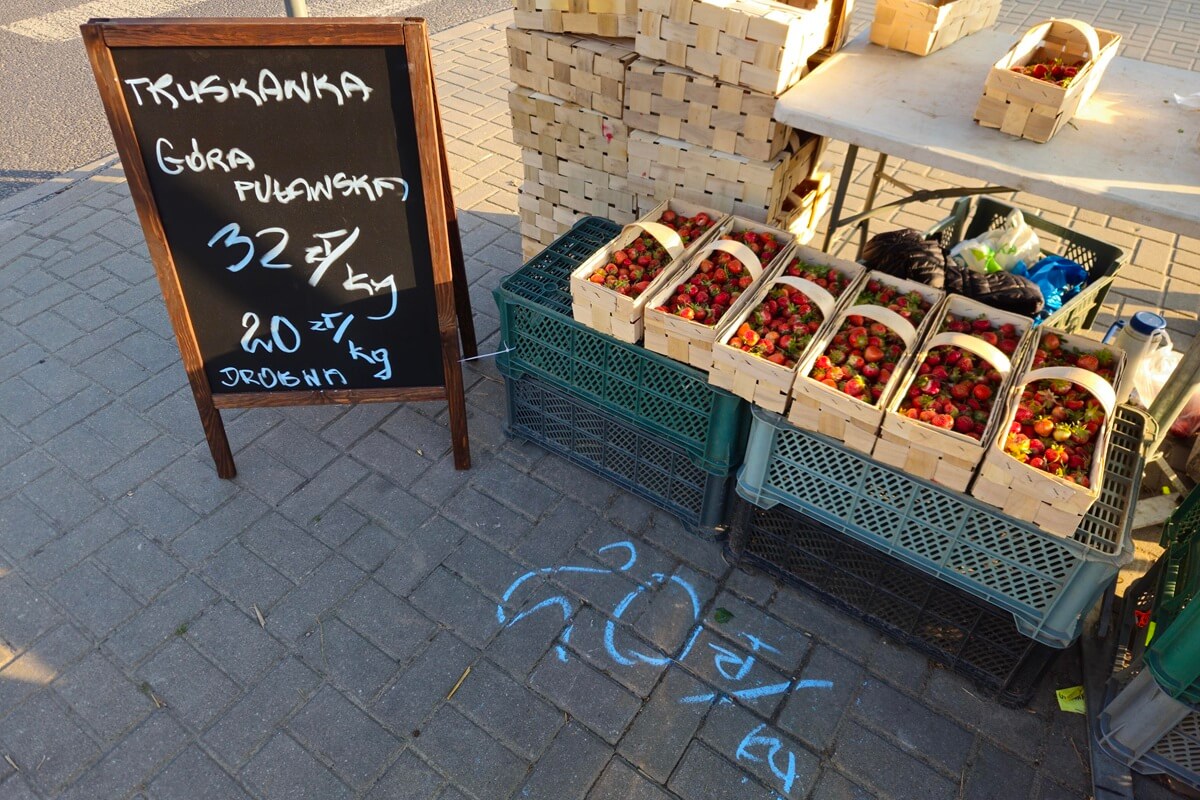 TRUSKAWKA
GÓRA
PUŁAWSKA
32 zł/
kg
20 zł/
kg
DROBNA
20 zł/
kg